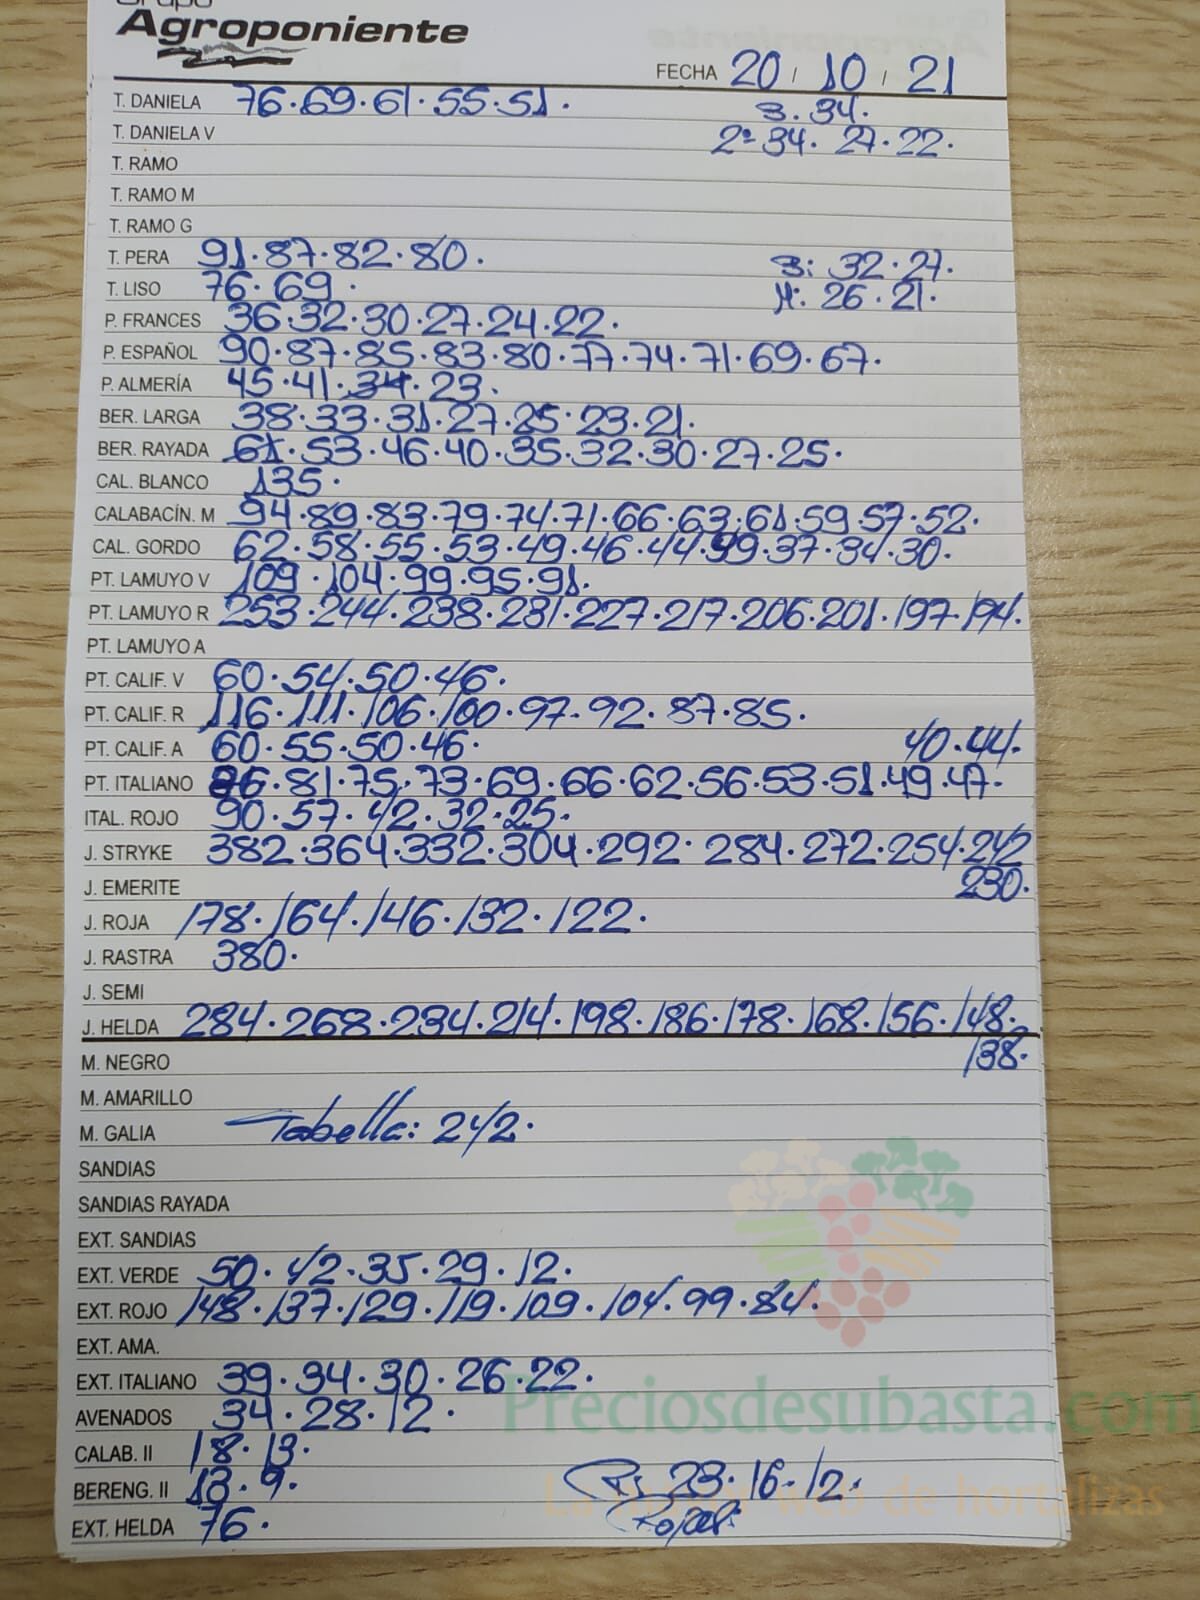 Grupo
Agroponiente
FECHA 20 / 10 / 21
T. DANIELA 76·69·61·55·51· 3·34·
T. DANIELA V 2ª 34· 27·22·
T. RAMO
T. RAMO M
T. RAMO G
T. PERA 91·87·82·80· 3: 32·27·
T. LISO 76·69· M: 26·21·
P. FRANCES 36·32·30·27·24·22·
P. ESPAÑOL 90·87·85·83·80·77·74·71·69·67·
P. ALMERÍA 45·41·34·23·
BER. LARGA 38·33·31·27·25·23·21·
BER. RAYADA 61·53·46·40·35·32·30·27·25·
CAL. BLANCO 135·
CALABACÍN. M 94·89·83·79·74·71·66·63·61·59·57·52·
CAL. GORDO 62·58·55·53·49·46·44·39·37·34·30·
PT. LAMUYO V 109·104·99·95·91·
PT. LAMUYO R 253·244·238·231·227·217·206·201·197·194·
PT. LAMUYO A
PT. CALIF. V 60·54·50·46·
PT. CALIF. R 116·111·106·100·97·92·87·85·
PT. CALIF. A 60·55·50·46· 40·44·
PT. ITALIANO 86·81·75·73·69·66·62·56·53·51·49·47·
ITAL. ROJO 90·57·42·32·25·
J. STRYKE 382·364·332·304·292·284·272·254·242
J. EMERITE 230·
J. ROJA 178·164·146·132·122·
J. RASTRA 380·
J. SEMI
J. HELDA 284·268·234·214·198·186·178·168·156·148·
M. NEGRO 138·
M. AMARILLO
M. GALIA Tabella: 242·
SANDIAS
SANDIAS RAYADA
EXT. SANDIAS
EXT. VERDE 50·42·35·29·12·
EXT. ROJO 148·137·129·119·109·104·99·84·
EXT. AMA.
EXT. ITALIANO 39·34·30·26·22·
Preciosdesubasta.com
AVENADOS 34·28·12·
CALAB. II 18·13·
BERENG. II 13·9· 23·16·12·
La web de hortalizas
EXT. HELDA 76·